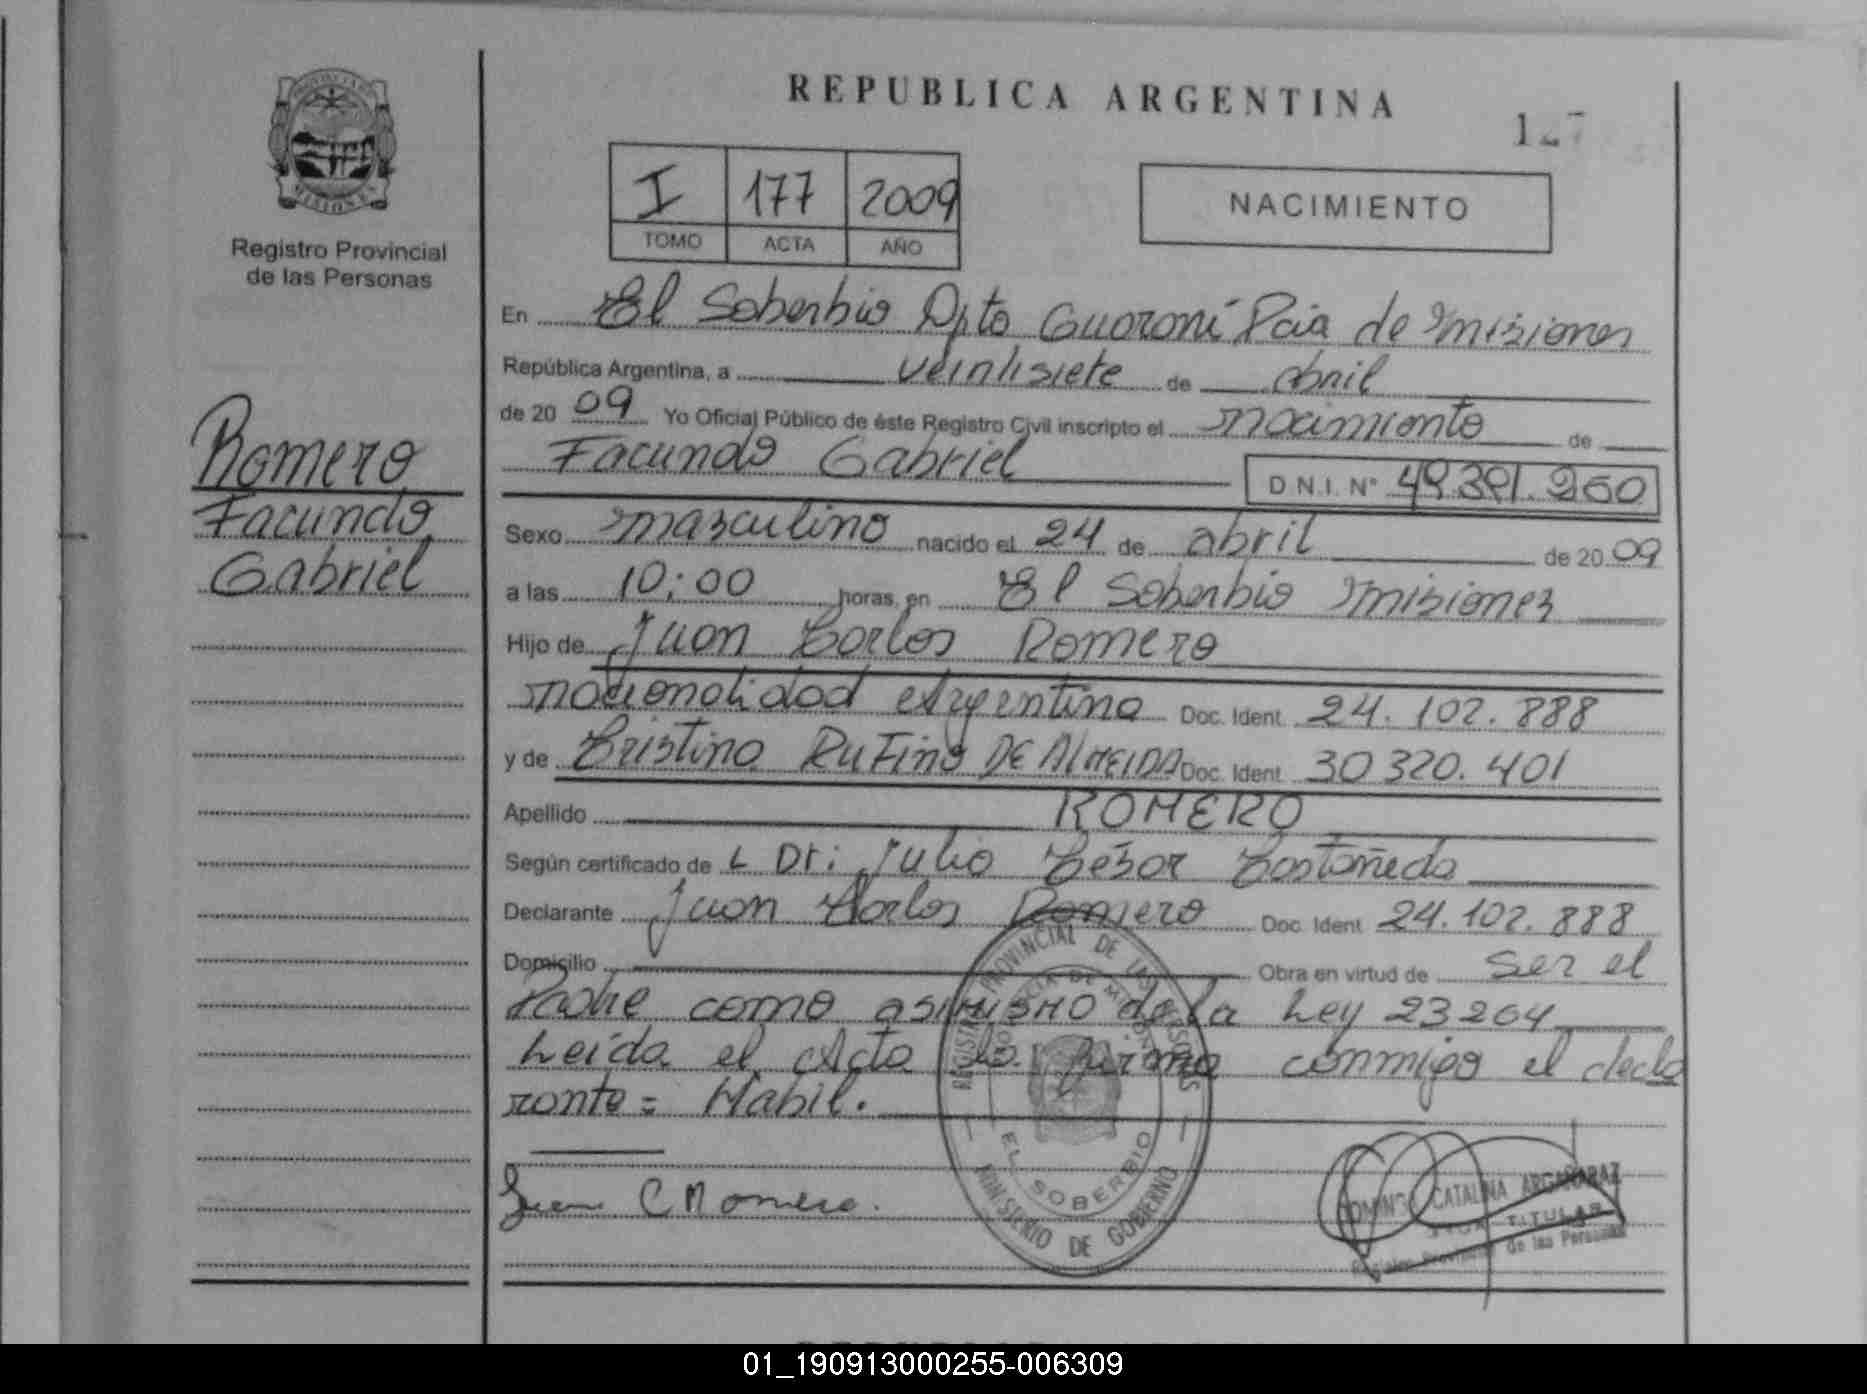 REPUBLICA ARGENTINA
127
PROVINCIA DE
MISIONES
Registro Provincial
de las Personas
I 177 2009
TOMO ACTA AÑO
NACIMIENTO
Romero
Facundo
Gabriel
En El Soberbio Dpto Guaraní Pcia de Misiones
República Argentina, a veintisiete de abril
de 20 09 Yo Oficial Público de éste Registro Civil inscripto el nacimiento de
Facundo Gabriel D.N.I. N° 49.391.260
Sexo masculino nacido el 24 de abril de 20 09
a las 10:00 horas, en El Soberbio Misiones
Hijo de Juan Carlos Romero
nacionalidad Argentina Doc. Ident. 24.102.888
y de Cristina Rufino DE ALMEIDA Doc. Ident. 30 320.401
Apellido ROMERO
Según certificado de L Dr: Julio César Castañeda
Declarante Juan Carlos Romero Doc. Ident. 24.102.888
Domicilio Obra en virtud de ser el
Padre como asimismo de la Ley 23264
Leida el Acta la firma conmigo el decla
rante = Habil.
Juan C Romero.
REGISTRO PROVINCIAL DE LAS PERSONAS
EL SOBERBIO
MINISTERIO DE GOBIERNO
DOMINGA CATALINA ARGAÑARAZ
TITULAR
Registro Provincial de las Personas
01_190913000255-006309